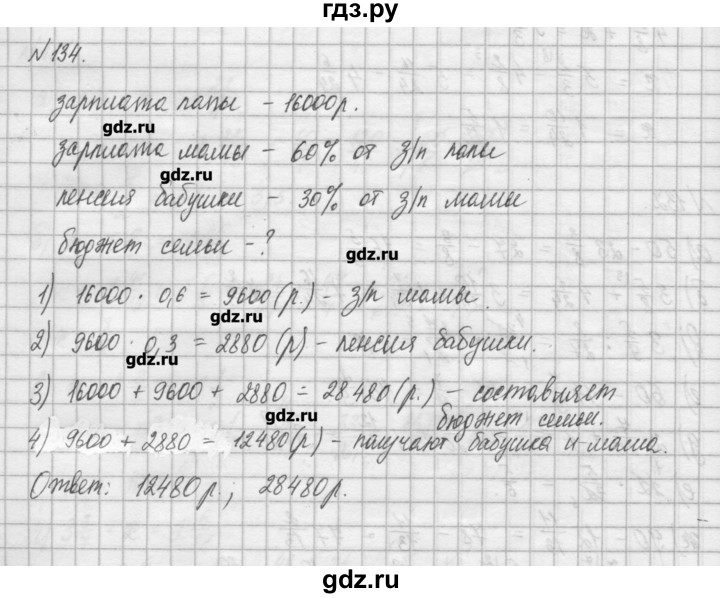 гдз.ру
№134.
зарплата папы – 16000р.
gdz.ru
зарплата мамы – 60% от з/п папы
gdz.ru
пенсия бабушки – 30% от з/п мамы
бюджет семьи – ?
gdz.ru
1) 16000 · 0,6 = 9600 (р.) – з/п мамы.
gdz.ru
2) 9600 · 0,3 = 2880 (р) – пенсия бабушки.
gdz.ru
3) 16000 + 9600 + 2880 = 28480 (р.) – составляет
gdz.ru
бюджет семьи.
4) 9600 + 2880 = 12480 (р) – получают бабушка и мама.
Ответ: 12480р.; 28480р.
gdz.ru